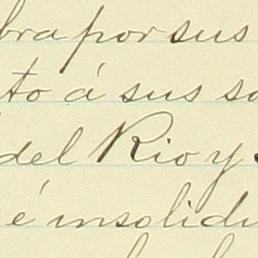 bra por sus
to á sus
del Rio y
é insolidu